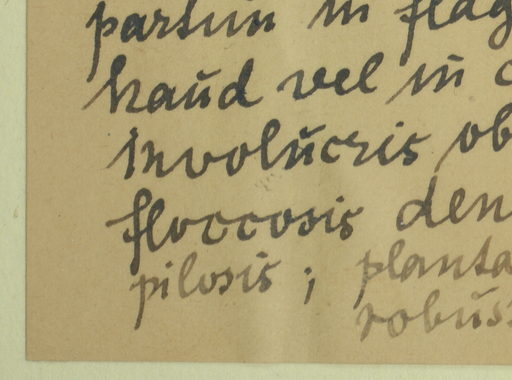 partim in flag
haud vel in c
involucris ob
floccosis den
pilosis; planta
robus